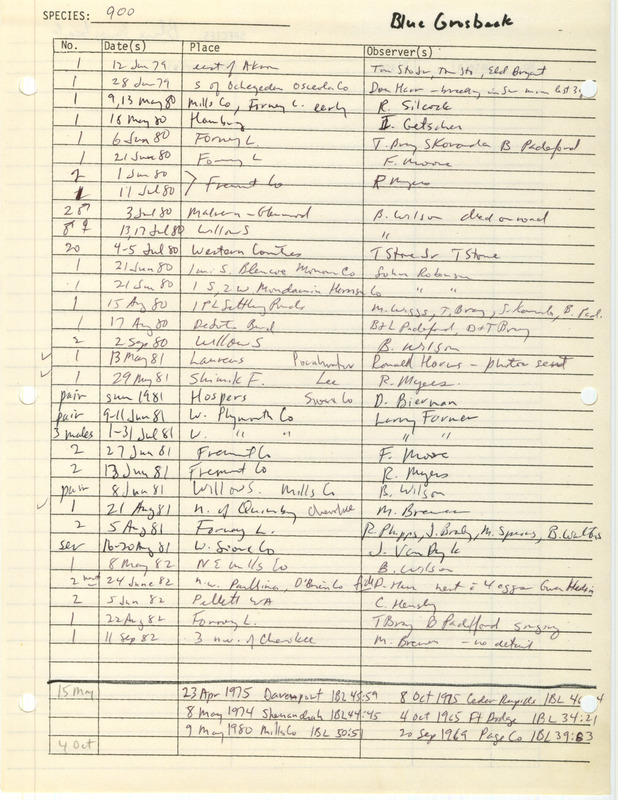 SPECIES: 900
Blue Grosbeak
No. Date(s) Place Observer(s)
1 12 Jun 79 east of Akron Tom Stone Jr,
1 28 Jun 79 S of Ocheyedan Osceola Co
1 9,13 May 80 Mills Co, Forney L. early R. Silcock
1 18 May 80 Hamburg I. Getscher
1 6 Jun 80 Forney L. T. Bray S Kovanda B Padelford
1 21 Jun 80 Forney L F. Moore
2 1 Jun 80
1 11 Jul 80 > Fremont Co R Myers
2♂? 3 Jul 80 Malvern - Glenwood B. Wilson died on road
♂ ♀ 13,17 Jul 80 Willow S "
20 4-5 Jul 80 Western Counties T Stone Jr T Stone
1 21 Jun 80 1 mi. S. Blencoe Monona Co John Robinson
1 21 Jun 80 1 S, 2 W Mondamin Harrison Co " "
1 15 Aug 80 IPL Settling Ponds M. Wiggs, T. Bray, S. Kovanda, B. Pad.
1 17 Aug 80 DeSoto Bend B+L Padelford, D+T Bray
2 2 Sep 80 Willow S B. Wilson
✓ 1 13 May 81 Laurens Pocahontas Ronald Horus - photo sent
✓ 1 29 May 81 Shimek F. Lee R. Myers.
pair sum 1981 Hospers Sioux Co D. Bierman
pair 9-11 Jun 81 W. Plymouth Co Larry Farmer
3 males 1-31 Jul 81 W. " " " "
2 27 Jun 81 Fremont Co F. Moore
2 13 Jun 81 Fremont Co R. Myers
pair 8 Jun 81 Willow S. Mills Co B. Wilson
✓ 1 21 Aug 81 n. of Quimby Cherokee M. Brewer
2 5 Aug 81 Forney L. R. Phipps, J. Brady, M. Spears, B. Walters
sev 16-20 Aug 81 W. Sioux Co J. Van Dyk
1 8 May 82 NE Mills Co B. Wilson
2 nest 24 June 82 n.w. Paullina, O'Brien Co nest & 4 eggs
2 5 Jun 82 Pellett WA C. Hensley
1 22 Aug 82 Forney L. T Bray B Padelford singing
1 11 Sep 82 3 n.w. of Cherokee M. Brewer - no detail
15 May 23 Apr 1975 Davenport IBL 45:59 8 Oct 1975 Cedar Rapids IBL
8 May 1974 Shenandoah IBL 44:45 4 Oct 1965 Ft Dodge IBL 34:21
9 May 1980 Mills Co IBL 50:51 20 Sep 1969 Page Co IBL 39:83
4 Oct